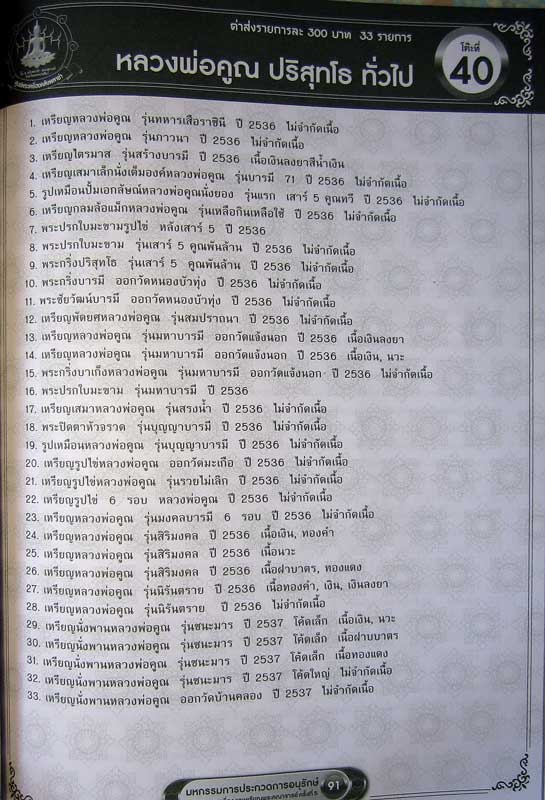 ค่าส่งรายการละ 300 บาท 33 รายการ
หลวงพ่อคูณ ปริสุทโธ ทั่วไป
โต๊ะที่
40
1. เหรียญหลวงพ่อคูณ รุ่นทหารเสือราชินี ปี 2536 ไม่จำกัดเนื้อ
2. เหรียญหลวงพ่อคูณ รุ่นภาวนา ปี 2536 ไม่จำกัดเนื้อ
3. เหรียญไตรมาส รุ่นสร้างบารมี ปี 2536 เนื้อเงินลงยาสีน้ำเงิน
4. เหรียญเสมาเล็กนั่งเต็มองค์หลวงพ่อคูณ รุ่นบารมี 71 ปี 2536 ไม่จำกัดเนื้อ
5. รูปเหมือนปั้มเอกลักษณ์หลวงพ่อคูณนั่งยอง รุ่นแรก เสาร์ 5 คูณทวี ปี 2536 ไม่จำกัดเนื้อ
6. เหรียญกลมล้อแม็กหลวงพ่อคูณ รุ่นเหลือกินเหลือใช้ ปี 2536 ไม่จำกัดเนื้อ
7. พระปรกใบมะขามรูปไข่ หลังเสาร์ 5 ปี 2536
8. พระปรกใบมะขาม รุ่นเสาร์ 5 คูณพันล้าน ปี 2536 ไม่จำกัดเนื้อ
9. พระกริ่งปริสุทโธ รุ่นเสาร์ 5 คูณพันล้าน ปี 2536 ไม่จำกัดเนื้อ
10. พระกริ่งบารมี ออกวัดหนองบัวทุ่ง ปี 2536 ไม่จำกัดเนื้อ
11. พระชัยวัฒน์บารมี ออกวัดหนองบัวทุ่ง ปี 2536 ไม่จำกัดเนื้อ
12. เหรียญพัดยศหลวงพ่อคูณ รุ่นสมปรารถนา ปี 2536 ไม่จำกัดเนื้อ
13. เหรียญหลวงพ่อคูณ รุ่นมหาบารมี ออกวัดแจ้งนอก ปี 2536 เนื้อเงินลงยา
14. เหรียญหลวงพ่อคูณ รุ่นมหาบารมี ออกวัดแจ้งนอก ปี 2536 เนื้อเงิน, นวะ
15. พระกริ่งบาเก็งหลวงพ่อคูณ รุ่นมหาบารมี ออกวัดแจ้งนอก ปี 2536 ไม่จำกัดเนื้อ
16. พระปรกใบมะขาม รุ่นมหาบารมี ปี 2536
17. เหรียญเสมาหลวงพ่อคูณ รุ่นสรงน้ำ ปี 2536 ไม่จำกัดเนื้อ
18. พระปิดตาหัวจรวด รุ่นบุญญาบารมี ปี 2536 ไม่จำกัดเนื้อ
19. รูปเหมือนหลวงพ่อคูณ รุ่นบุญญาบารมี ปี 2536 ไม่จำกัดเนื้อ
20. เหรียญรูปไข่หลวงพ่อคูณ ออกวัดมะเกือ ปี 2536 ไม่จำกัดเนื้อ
21. เหรียญรูปไข่หลวงพ่อคูณ รุ่นรวยไม่เลิก ปี 2536 ไม่จำกัดเนื้อ
22. เหรียญรูปไข่ 6 รอบ หลวงพ่อคูณ ปี 2536 ไม่จำกัดเนื้อ
23. เหรียญหลวงพ่อคูณ รุ่นมงคลบารมี 6 รอบ ปี 2536 ไม่จำกัดเนื้อ
24. เหรียญหลวงพ่อคูณ รุ่นสิริมงคล ปี 2536 เนื้อเงิน, ทองคำ
25. เหรียญหลวงพ่อคูณ รุ่นสิริมงคล ปี 2536 เนื้อนวะ
26. เหรียญหลวงพ่อคูณ รุ่นสิริมงคล ปี 2536 เนื้อฝาบาตร, ทองแดง
27. เหรียญหลวงพ่อคูณ รุ่นนิรันตราย ปี 2536 เนื้อทองคำ, เงิน, เงินลงยา
28. เหรียญหลวงพ่อคูณ รุ่นนิรันตราย ปี 2536 ไม่จำกัดเนื้อ
29. เหรียญนั่งพานหลวงพ่อคูณ รุ่นชนะมาร ปี 2537 โค้ดเล็ก เนื้อเงิน, นวะ
30. เหรียญนั่งพานหลวงพ่อคูณ รุ่นชนะมาร ปี 2537 โค้ดเล็ก เนื้อฝาบบาตร
31. เหรียญนั่งพานหลวงพ่อคูณ รุ่นชนะมาร ปี 2537 โค้ดเล็ก เนื้อทองแดง
32. เหรียญนั่งพานหลวงพ่อคูณ รุ่นชนะมาร ปี 2537 โค้ดใหญ่ ไม่จำกัดเนื้อ
33. เหรียญนั่งพานหลวงพ่อคูณ ออกวัดบ้านคลอง ปี 2537 ไม่จำกัดเนื้อ
มหกรรมการประกวดการอนุรักษ์
91